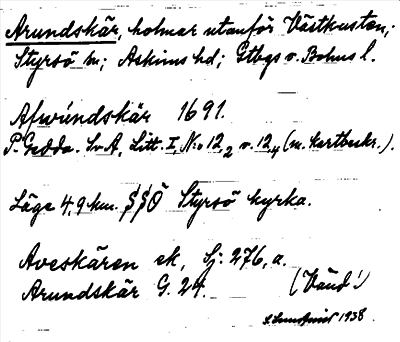 Arundskär, holmar utanför Västkusten,
Styrsö sn; Askims hd; Gtbgs o. Bohus l.
Afwúndskär 1691.
P. Gedda. SvA, Litt. I, N:o 12,2 o. 12,4 (m. kartbeskr.).
Läge 4,9 km. SSÖ Styrsö kyrka.
Aveskären ek, Sj: 276, a.
Arundskär G. 24. (Vänd!)
1938